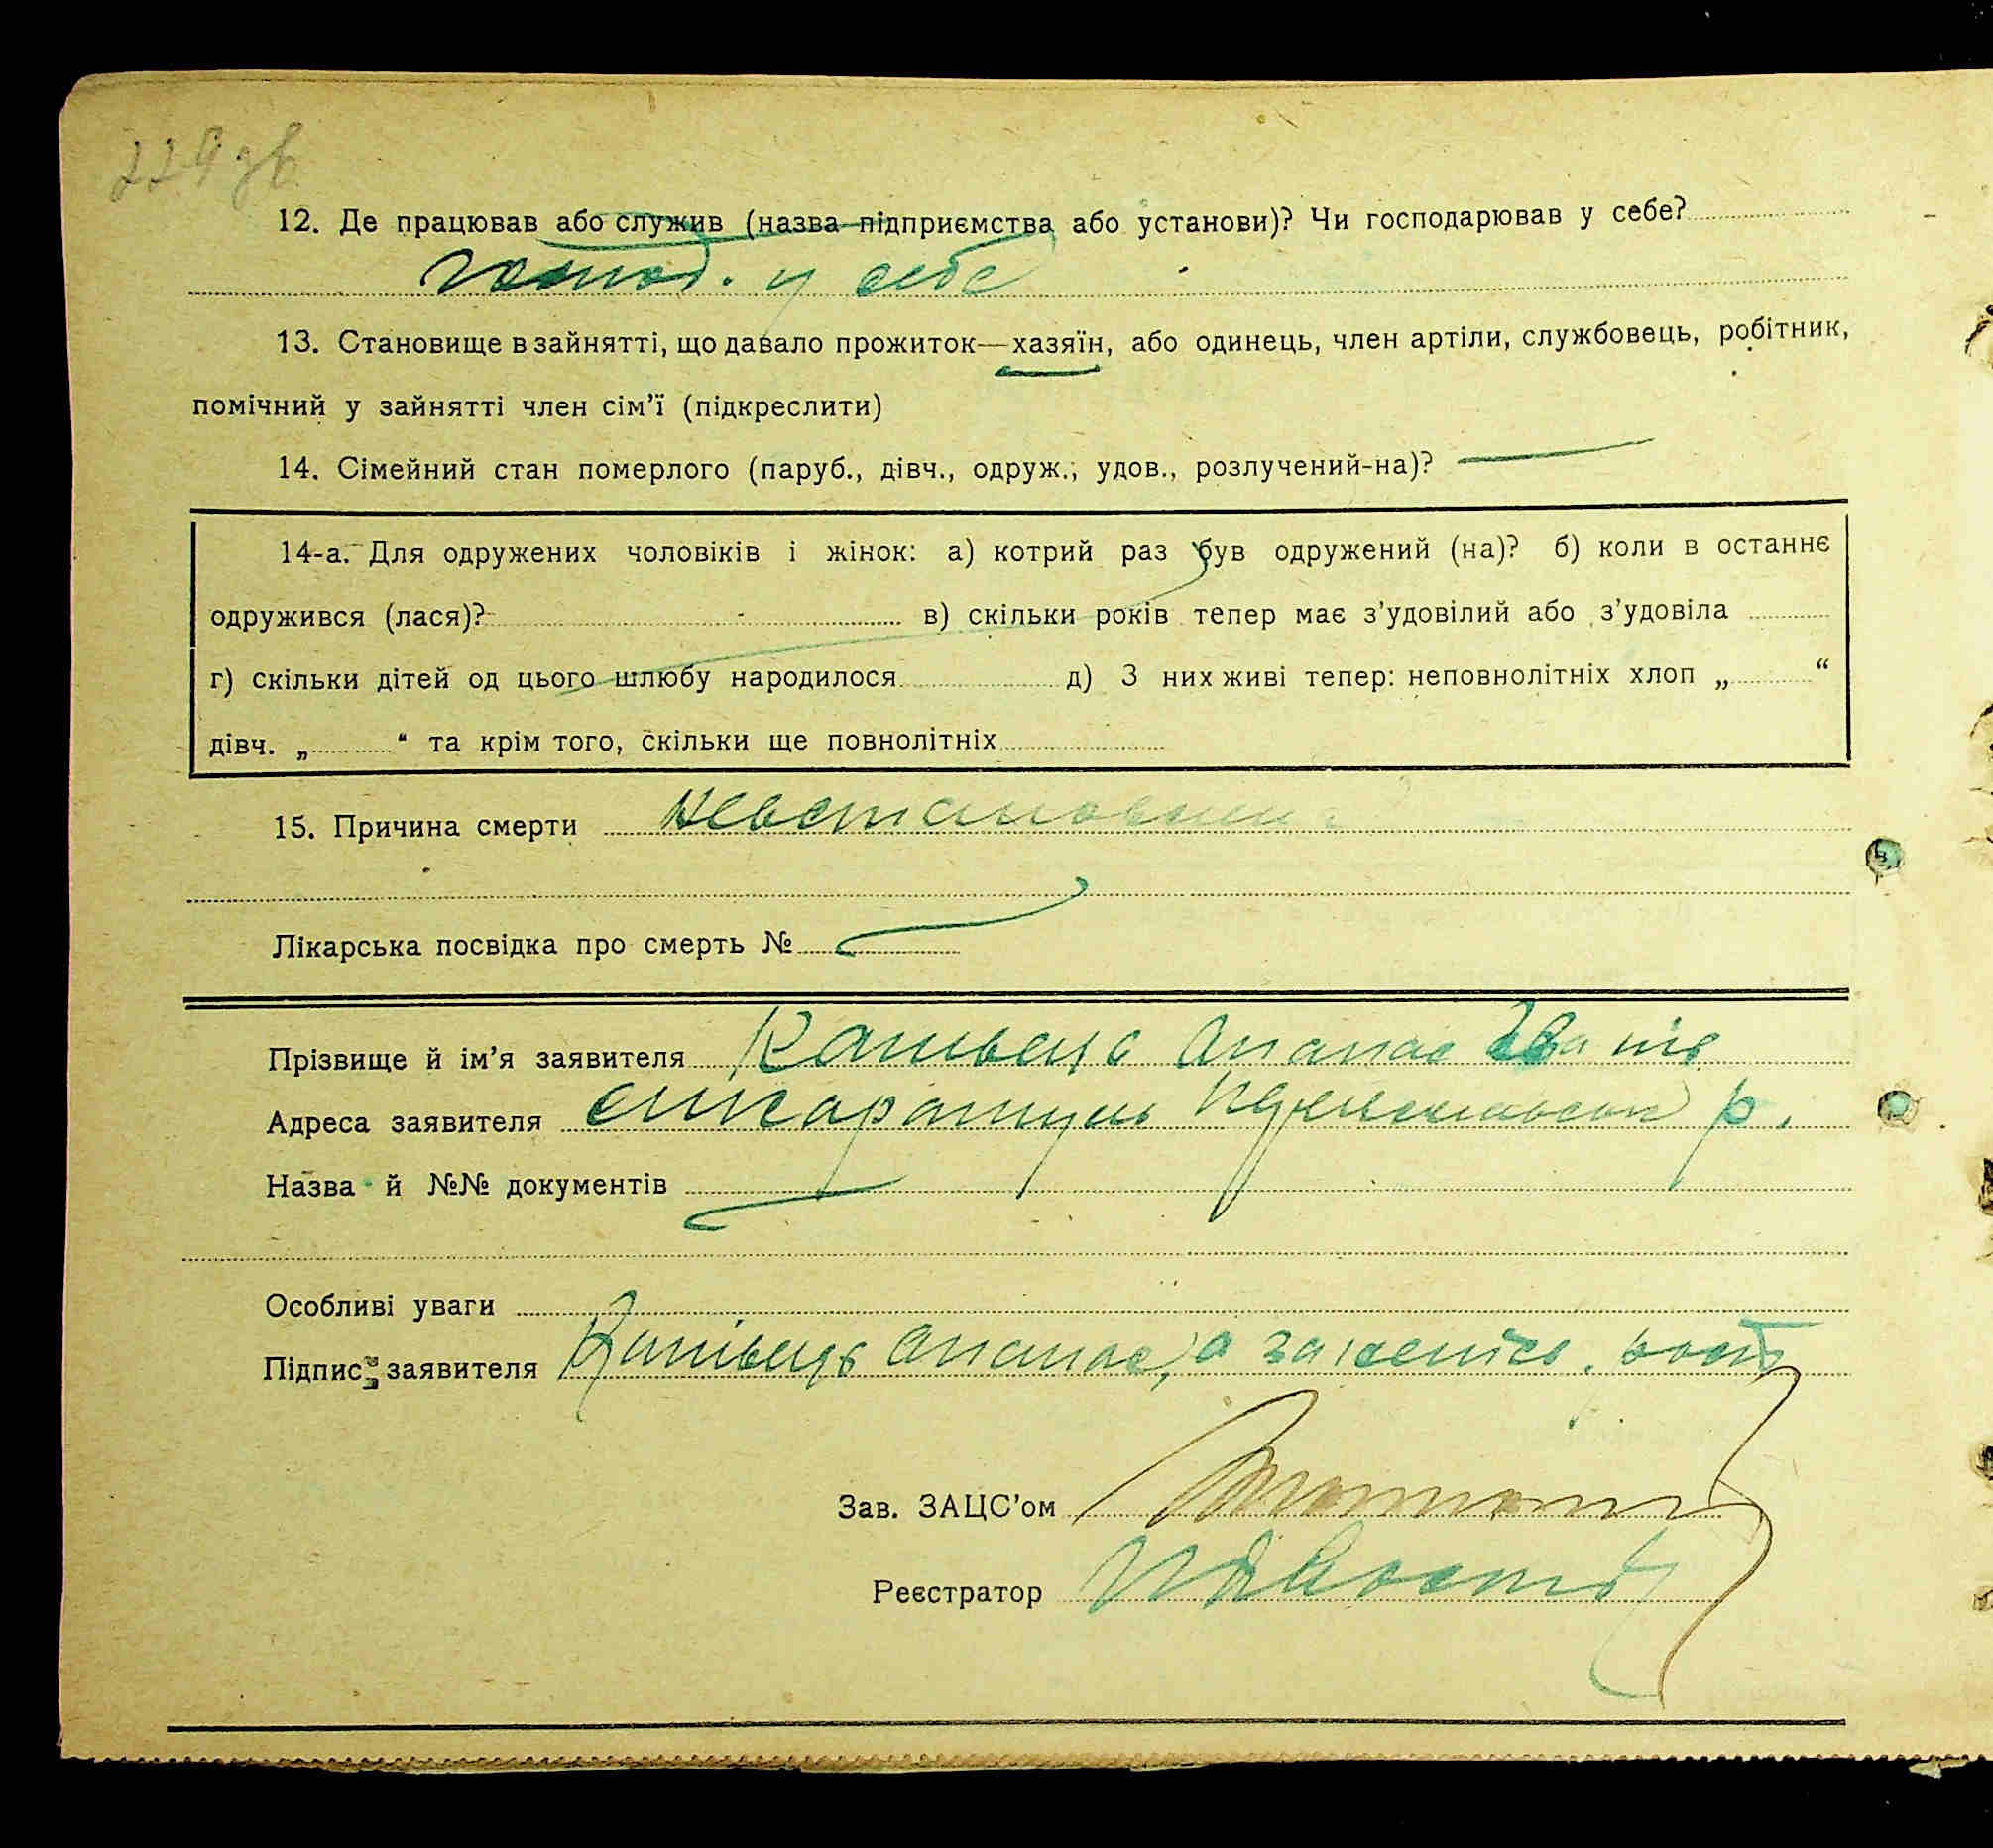 229 зв.
12. Де працював або служив (назва підприємства або установи)? Чи господарював у себе?
господ. у себе
13. Становище в зайнятті, що давало прожиток—хазяїн, або одинець, член артіли, службовець, робітник,
помічний у зайнятті член сім’ї (підкреслити)
14. Сімейний стан померлого (паруб., дівч., одруж., удов., розлучений-на)? —
14-а. Для одружених чоловіків і жінок: а) котрий раз був одружений (на)? б) коли в останнє
одружився (лася)? в) скільки років тепер має з’удовілий або з’удовіла
г) скільки дітей од цього шлюбу народилося д) З них живі тепер: неповнолітніх хлоп „ “
дівч. „ “ та крім того, скільки ще повнолітніх
15. Причина смерти
Лікарська посвідка про смерть №
Прізвище й ім’я заявителя Опанас
Адреса заявителя р.
Назва й №№ документів
Особливі уваги
Підпис заявителя Опанас, а
Зав. ЗАЦС’ом
Реєстратор